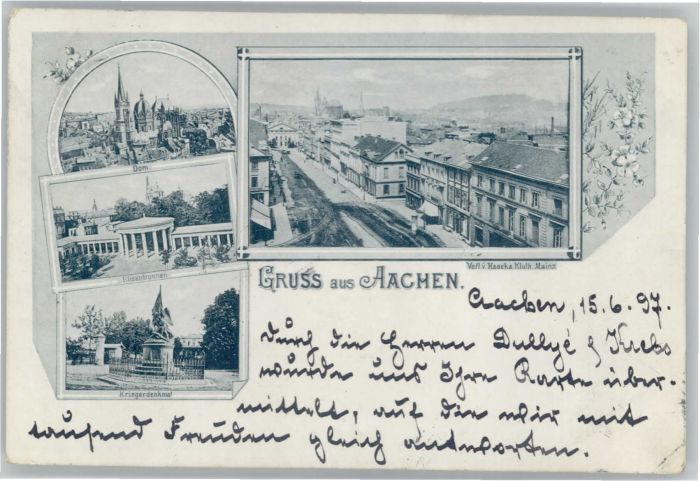 Dom.
Elisenbrunnen
Kriegerdenkmal
Verl. v. Haacke Kluth. Mainz
GRUSS AUS AACHEN.
Aachen, 15.6.97.
Durch die Herren Dullyé & Krebs
wurde uns Ihre Karte über-
mittelt, auf die wir mit
tausend Freuden gleich antworten.